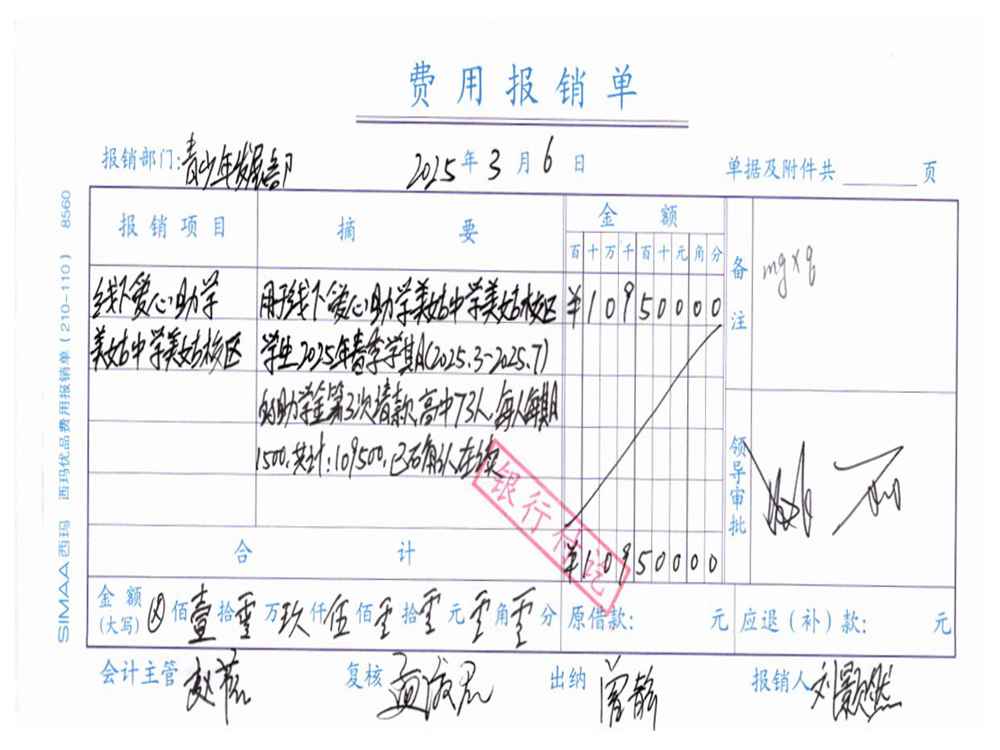 费用报销单
报销部门:青少年发展部 2025年3月6日 单据及附件共 页
报销项目 摘要 金额 备注
百十万千百十元角分
mgxq
线下爱心助学 用于线下爱心助学美姑中学美姑校区 ¥10950000
美姑中学美姑校区 学生2025年春季学期(2025.3-2025.7)
的助学金第3次请款,高中73人,每人每期
1500,共计:109500,已确认在续
银行付讫
领导审批
合计 ¥10950000
金额(大写) ⊗佰壹拾零万玖仟伍佰零拾零元零角零分 原借款: 元 应退(补)款: 元
会计主管 复核 出纳 曾静 报销人 刘颢然
SIMAA西玛 西玛优品费用报销单(210-110) 8560